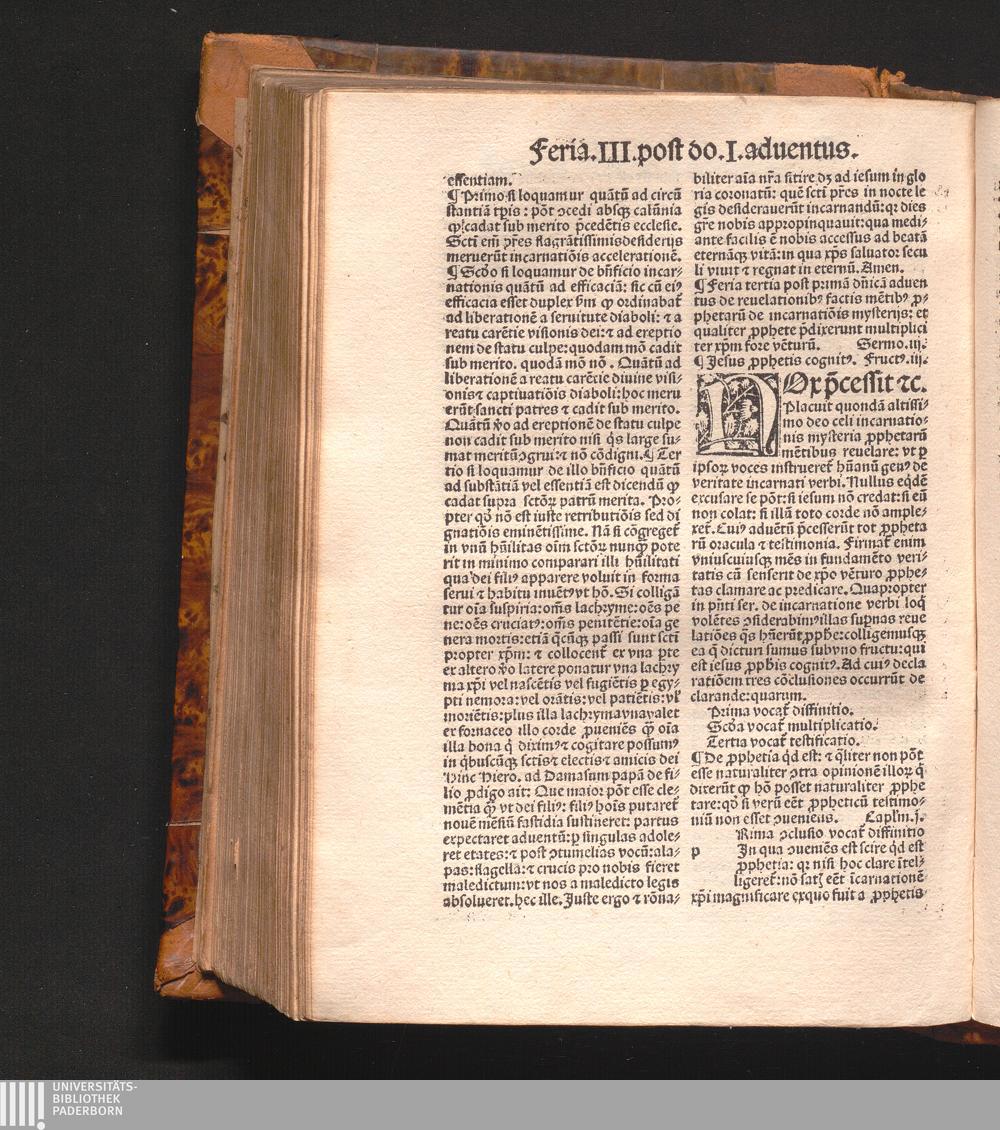 Feria.III.post do.I.aduentus.
essentiam.
¶ Primo si loquamur quãtũ ad circũ
stantiã tp̃is: põt ↄcedi absqꝫ calũnia
ꝙ cadat sub merito p̃cedẽtis ecclesie.
Scti em̃ pr̃es flagrãtissimis desiderijs
meruerũt incarnatiõis accelerationẽ.
¶ Scðo si loquamur de bñficio incar⸗
nationis quãtũ ad efficaciã: sic cũ eiꝰ
efficacia esset duplex ẜm ꝙ ordinabat̃
ad liberationẽ a seruitute diaboli: ⁊ a
reatu carẽtie visionis dei: ⁊ ad ereptio
nem de statu culpe: quodam mõ cadit
sub merito. quodã mõ nõ. Quãtũ ad
liberationẽ a reatu carẽtie diuine visi⸗
onis ⁊ captiuatiõis diaboli: hoc meru
erũt sancti patres ⁊ cadit sub merito.
Quãtũ ṽo ad ereptionẽ de statu culpe
non cadit sub merito nisi q̃s large su⸗
mat meritũ ↄgrui: ⁊ nõ cõdigni. ¶ Ter
tio si loquamur de illo bñficio quãtũ
ad substãtiã vel essentiã est dicendũ ꝙ
cadat supra sctõꝝ patrũ merita. Pro⸗
pter qð nõ est iuste retributiõis sed di
gnatiõis eminẽtissime. Nã si cõgreget̃
in vnũ hũilitas oĩm sctõꝝ nunꝙ̃ pote
rit in minimo comparari illi hũilitati
qua dei filiꝰ apparere voluit in forma
serui ⁊ habitu inuẽtꝰ vt hõ. Si colligã
tur oĩa suspiria: om̃s lachryme: oẽs pe
ne: oẽs cruciatꝰ: om̃s penitẽtie: oĩa ge
nera mortis: etiã q̃cũqꝫ passi sunt sctĩ
propter xp̃m: ⁊ collocent̃ ex vna ꝑte
ex altero ṽo latere ponatur vna lachry
ma xp̃i vel nascẽtis vel fugiẽtis ꝑ egy⸗
pti nemora: vel orãtis: vel patiẽtis: vl̃
moriẽtis: plus illa lachryma vna valet
ex fornaceo illo corde ꝓueniẽs ꝙ̃ oĩa
illa bona q̃ diximꝰ ⁊ cogitare possumꝰ
in q̃buscũqꝫ sctis ⁊ electis ⁊ amicis dei
Hinc Hiero. ad Damasum papã de fi⸗
lio ꝓdigo ait: Que maior põt esse cle⸗
mẽtia ꝙ̃ vt dei filiꝰ: filiꝰ hoĩs putaret̃
nouẽ mẽsiũ fastidia sustineret: partus
expectaret aduentũ: ꝑ singulas adole⸗
ret etates: ⁊ post ↄtumelias vocũ: ala⸗
pas: flagella: ⁊ crucis pro nobis fieret
maledictum: vt nos a maledicto legis
absolueret. hec ille. Juste ergo ⁊ rõna⸗
biliter aĩa nr̃a sitire dꝫ ad iesum in glo
ria coronatũ: quẽ scti pr̃es in nocte le
gis desiderauerũt incarnandũ: qꝛ dies
gr̃e nobis appropinquauit: qua medi⸗
ante facilis ẽ nobis accessus ad beatã
eternãqꝫ vitã: in qua xp̃s saluator secu
li viuit ⁊ regnat in eternũ. Amen.
¶ Feria tertia post primã dñicã aduen
tus de reuelationibꝰ factis mẽtibꝰ ꝓ⸗
phetarũ de incarnatiõis mysterijs: et
qualiter ꝓphete p̃dixerunt multiplici
ter xp̃m fore vẽturũ. Sermo.iij.
¶ Jesus ꝓphetis cognitꝰ. Fructꝰ.iij.
NOx p̃cessit ⁊c.
Placuit quondã altissi⸗
mo deo celi incarnatio⸗
nis mysteria ꝓphetarũ
mẽtibus reuelare: vt ꝑ
ipsoꝝ voces instrueret̃ hũanũ genꝰ de
veritate incarnati verbi. Nullus eq̃dẽ
excusare se põt: si iesum nõ credat: si eũ
non colat: si illũ toto corde nõ ample⸗
xet̃. Cuiꝰ aduẽtũ p̃cesserũt tot ꝓpheta
rũ oracula ⁊ testimonia. Firmat̃ enim
vniuscuiusqꝫ mẽs in fundamẽto veri⸗
tatis cũ senserit de xp̃o vẽturo ꝓphe⸗
tas clamare ac predicare. Quapropter
in pñti ser. de incarnatione verbi loq̃
volẽtes ↄsiderabimꝰ illas sup̃nas reue
latiões q̃s hñerũt ꝓphe: colligemusqꝫ
ea q̃ dicturi sumus sub vno fructu: qui
est iesus ꝓphis cognitꝰ. Ad cuiꝰ decla
ratiõem tres cõclusiones occurrũt de
clarande: quarum.
Prima vocat̃ diffinitio.
Scða vocat̃ multiplicatio.
Tertia vocat̃ testificatio.
¶ De ꝓphetia q̃d est: ⁊ q̃liter non põt
esse naturaliter ↄtra opinionẽ illoꝝ q̃
dixerũt ꝙ hõ posset naturaliter ꝓphe
tare: qð si verũ eẽt ꝓpheticũ testimo⸗
niũ non esset ↄueniens. Capl̃m.j.
p Rima ↄclusio vocat̃ diffinitio
In qua ↄueniẽs est scire q̃d est
ꝓphetia: qꝛ nisi hoc clare ĩtel⸗
ligeret̃: nõ satꝫ eẽt ĩcarnationẽ
xp̃i magnificare ex quo fuit a ꝓphetis
UNIVERSITÄTS-
BIBLIOTHEK
PADERBORN